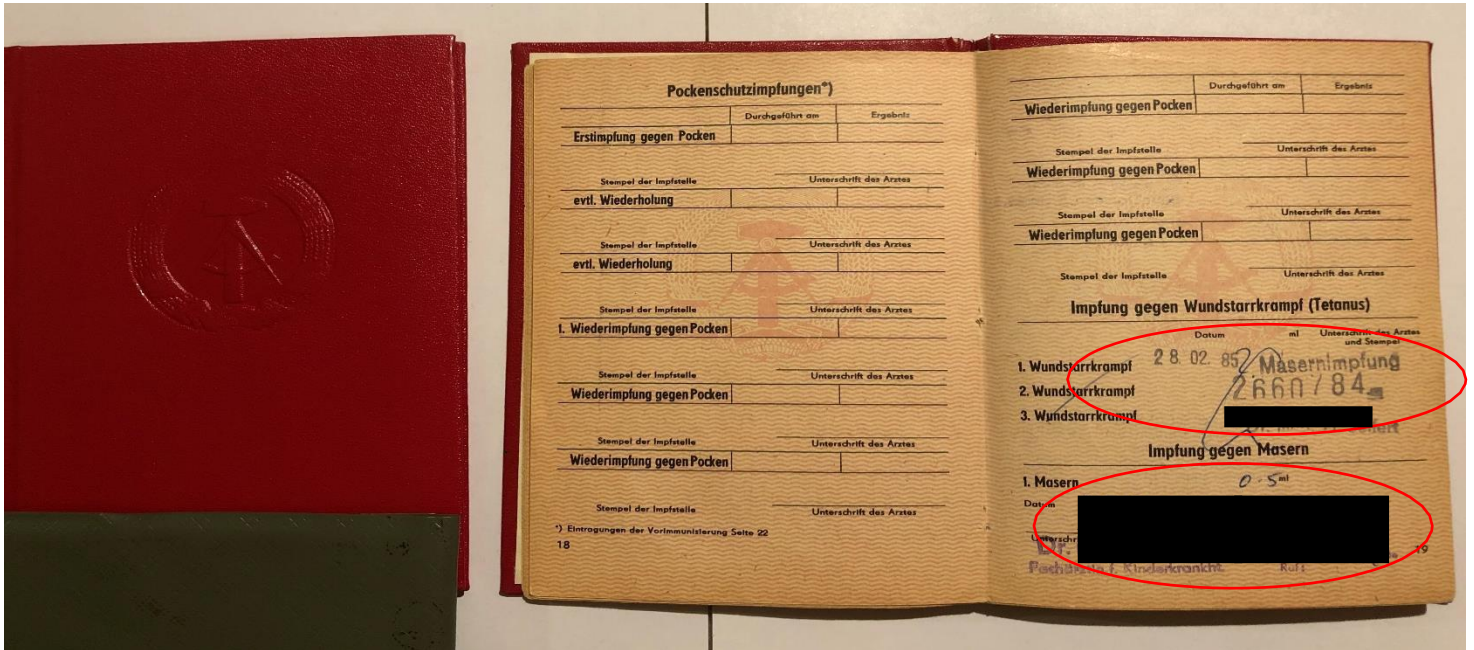 Pockenschutzimpfungen*)
Durchgeführt am Ergebnis
Erstimpfung gegen Pocken
Stempel der Impfstelle Unterschrift des Arztes
evtl. Wiederholung
Stempel der Impfstelle Unterschrift des Arztes
evtl. Wiederholung
Stempel der Impfstelle Unterschrift des Arztes
1. Wiederimpfung gegen Pocken
Stempel der Impfstelle Unterschrift des Arztes
Wiederimpfung gegen Pocken
Stempel der Impfstelle Unterschrift des Arztes
Wiederimpfung gegen Pocken
Stempel der Impfstelle Unterschrift des Arztes
*) Eintragungen der Vorimmunisierung Seite 22
18
Durchgeführt am Ergebnis
Wiederimpfung gegen Pocken
Stempel der Impfstelle Unterschrift des Arztes
Wiederimpfung gegen Pocken
Stempel der Impfstelle Unterschrift des Arztes
Wiederimpfung gegen Pocken
Stempel der Impfstelle Unterschrift des Arztes
Impfung gegen Wundstarrkrampf (Tetanus)
Datum ml Unterschrift des Arztes
und Stempel
1. Wundstarrkrampf 28. 02. 85 Masernimpfung
2. Wundstarrkrampf 2660/84
3. Wundstarrkrampf
Impfung gegen Masern
1. Masern 0.5 ml
Datum
Dr.
Fachärztin f. Kinderkrankht. Ruf:
19